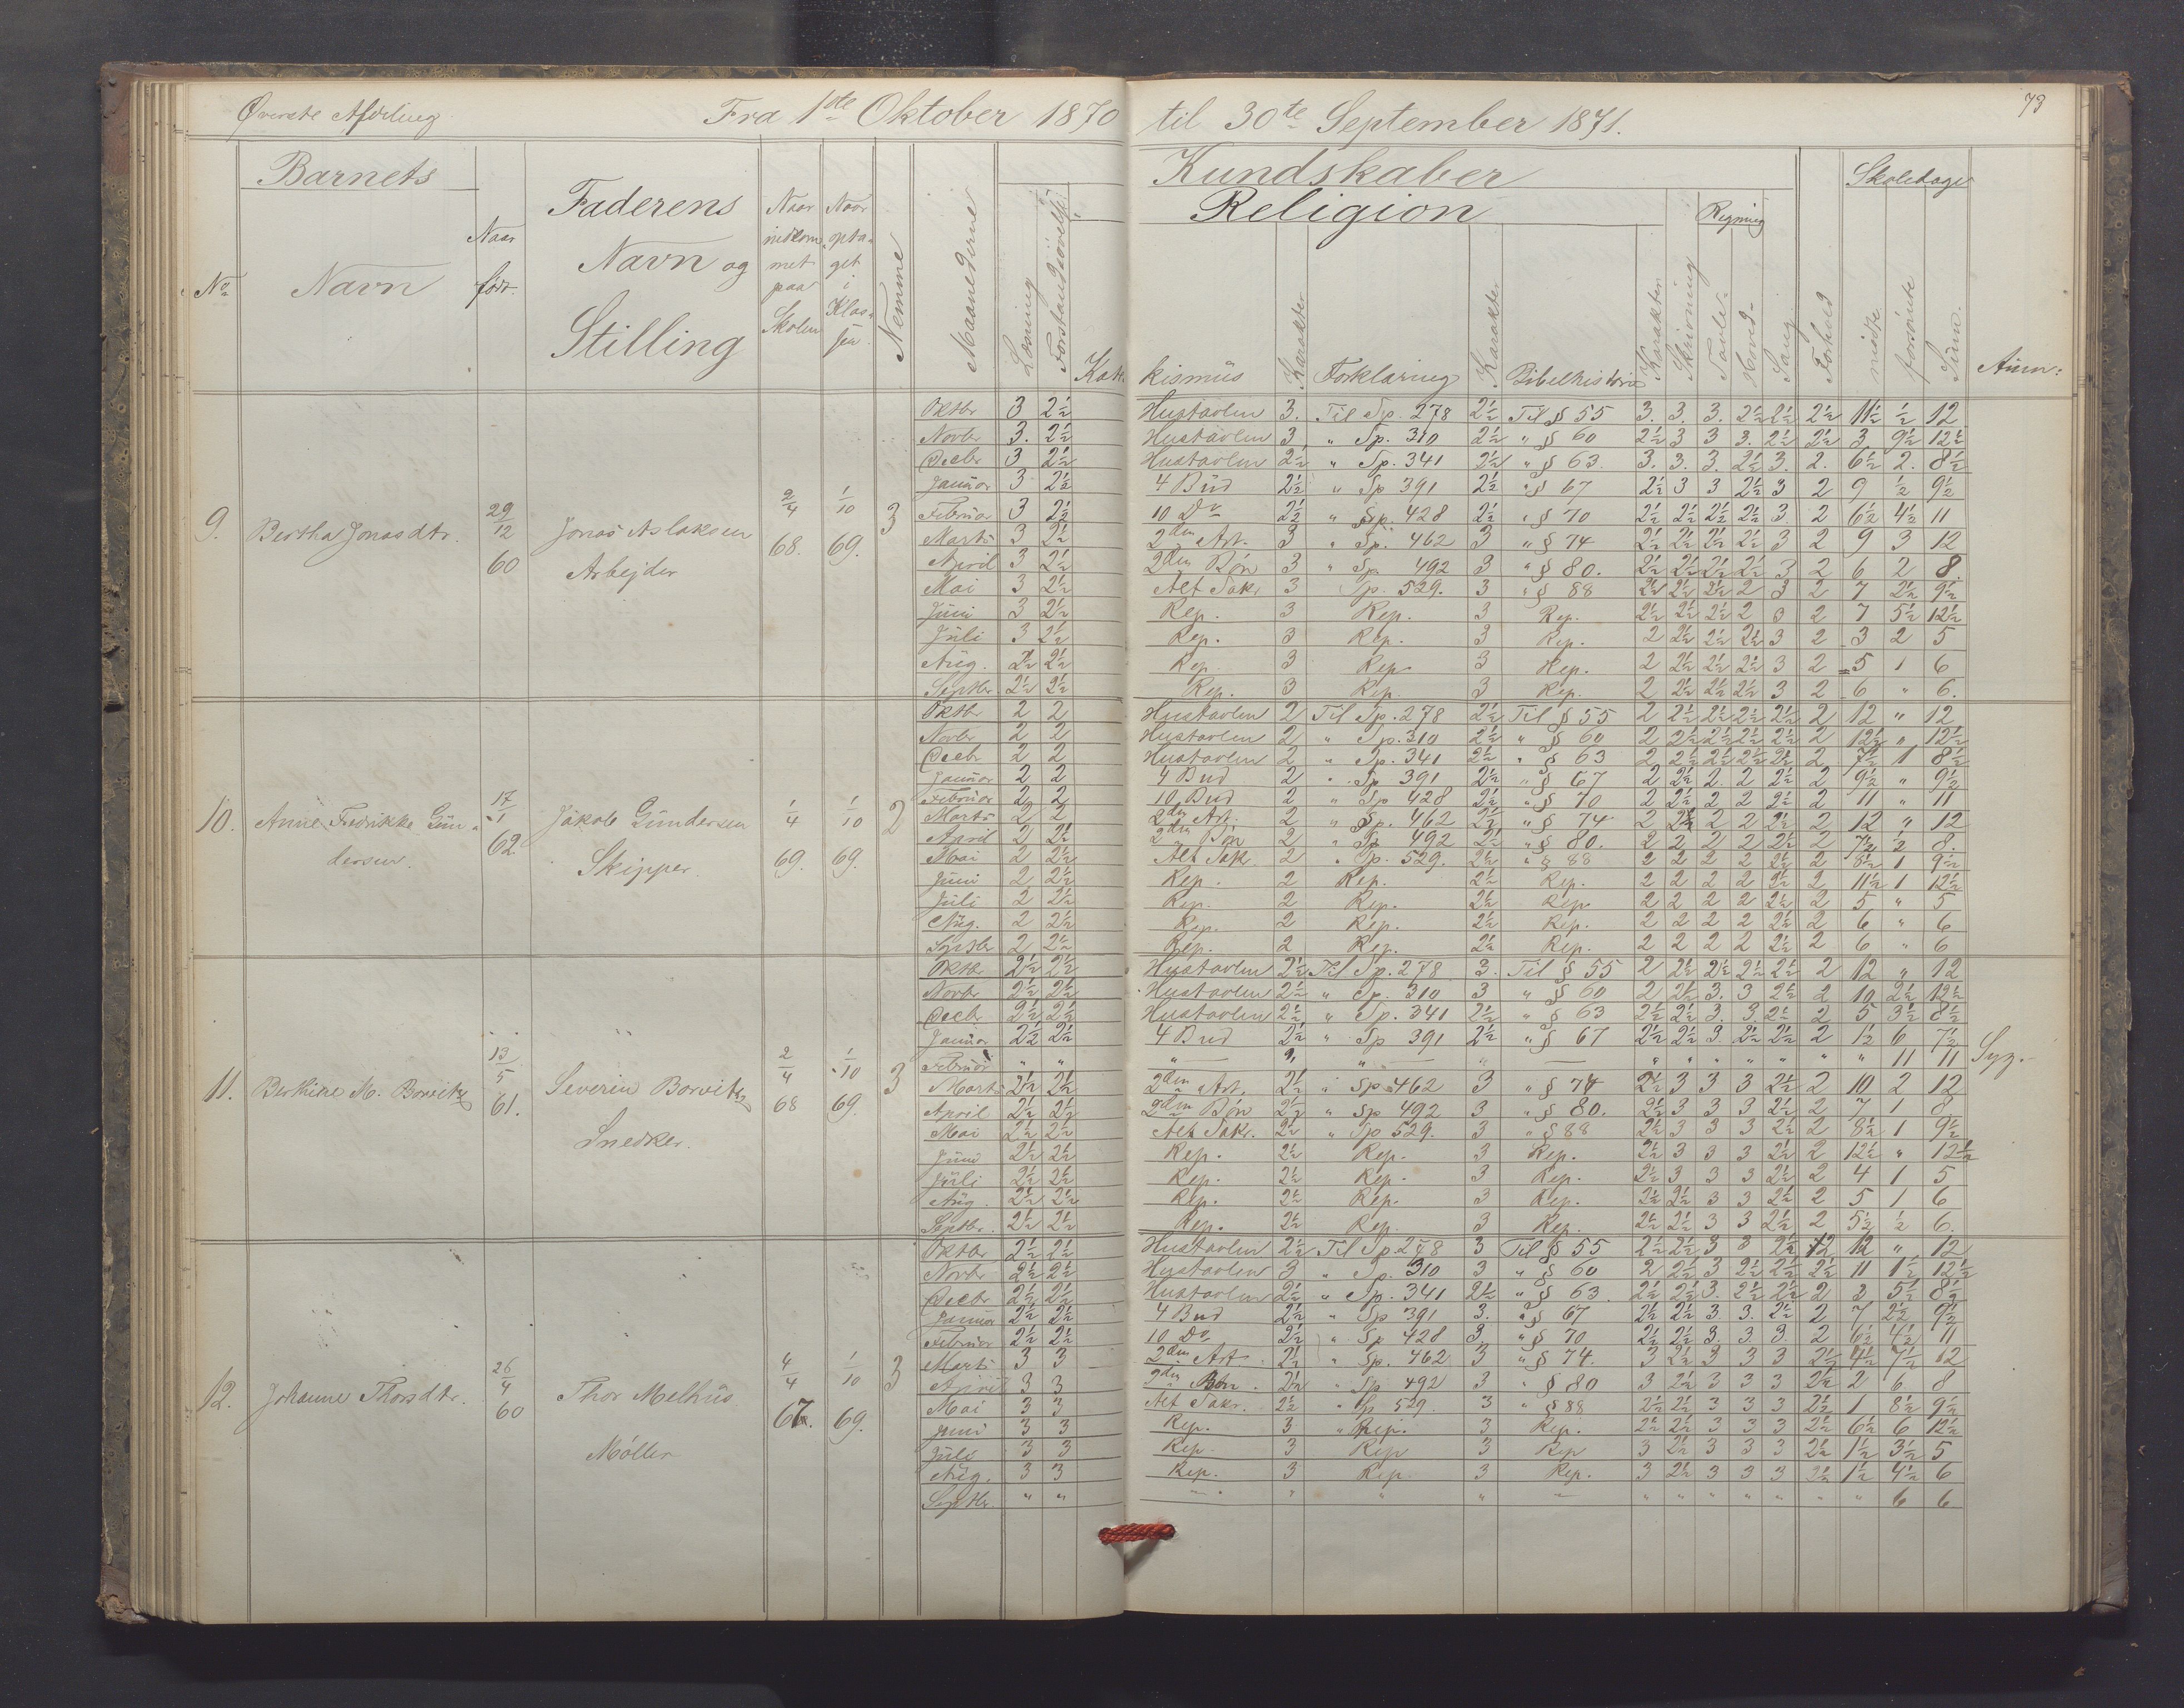 73
Øverste Afdeling. Fra 1ste Oktober 1870 til 30te September 1871.
Barnets Kundskaber Skoledage
Faderens Religion Regning
No Navn Naar født. Navn og Stilling Naar indkommet paa Skolen Naar optaget i Klassen Nemme Maanederne Læsning Forstandsøvelse Katekismus Karakter Forklaring Karakter Bibelhistorie Karakter Skrivning Tavle- Hoved- Sang. Forhold mødte forsømte Sum. Anm:
9. Bertha Jonasdtr. 29/12 60 Jonas Aslaksen Arbejder 2/4 68. 1/10 69. 3
Oktbr 3 2½ Hustavlen 3. Til Sp. 278 2½ Til § 55 3. 3. 3. 2½ 2½ 2½ 11½ ½ 12
Novbr 3. 2½ Hustavlen 3 " Sp. 310 2½ " § 60 2½ 3 3 3. 2½ 2½ 3 9½ 12½
Decbr 3 2½ Hustavlen 2½ " Sp. 341 2½ " § 63. 3. 3. 3. 2½ 3. 2. 6½ 2. 8½
Januar 3 2½ 4 Bud 2½ " Sp 391 2½ " § 67 2½ 3 3 2½ 3 2 9 ½ 9½
Februar 3 2½ 10 Do 2½ " Sp. 428 2½ " § 70 2½ 2½ 2½ 2½ 3 2 6½ 4½ 11
Marts 3 2½ 2den Art. 3 " Sp. 462 3 " § 74 2½ 2½ 2½ 2½ 3 2 9 3 12
April 3 2½ 2den Bøn 3 " Sp 492 3 " § 80. 2½ 2½ 2½ 2½ 3 2 6 2 8
Mai 3 2½ Alt Sakr. 3 Sp. 529. 3 " § 88 2½ 2½ 2½ 2 3 2 7 2½ 9½
Juni 3 2½ Rep. 3 Rep. 3 Rep. 2½ 2½ 2½ 2 3 2 7 5½ 12½
Juli 3 2½ Rep. 3 Rep. 3 Rep. 2 2½ 2½ 2½ 3 2 3 2 5
Aug. 2½ 2½ Rep 3 Rep. 3 Rep. 2 2½ 2½ 2½ 3 2 5 1 6
Septbr. 2½ 2½ Rep. 3 Rep. 3 Rep. 2 2½ 2½ 2½ 3 2 6 " 6.
10. Anne Fredrikke Gundersen. 17/1 62. Jakob Gundersen Skipper. 1/4 69. 1/10 69. 2
Oktbr 2 2 Hustavlen 2 Til Sp. 278 2½ Til § 55 2 2½ 2½ 2½ 2½ 2 12 " 12
Novbr 2 2 Hustavlen 2 " Sp. 310 2½ " § 60 2 2½ 2½ 2½ 2½ 2 12½ " 12½
Decbr 2 2 Hustavlen 2 " Sp. 341 2½ " § 63 2 2½ 2½ 2½ 2½ 2 7½ 1 8½
Januar 2 2 4 Bud 2 " Sp 391 2½ " § 67 2 2½ 2. 2 2½ 2 9½ " 9½
Februar 2 2 10 Bud 2 " Sp 428 2½ " § 70 2 2½ 2 2 2½ 2 11 " 11
Marts 2 2 2den Art. 2 " Sp. 462 2½ " § 74 2 2½ 2 2 2½ 2 12 " 12
April 2 2½ 2den Bøn 2 " Sp 492 2½ " § 80. 2 2 2 2 2½ 2 7½ ½ 8.
Mai 2 2½ Alt Sak 2 " Sp. 529. 2½ " § 88 2 2 2 2 2½ 2 8½ 1 9½
Juni 2 2½ Rep. 2 Rep. 2½ Rep. 2 2 2 2 2½ 2 11½ 1 12½
Juli 2 2½ Rep. 2 Rep. 2½ Rep 2 2 2 2 2½ 2 5 " 5
Aug. 2 2½ Rep. 2 Rep. 2½ Rep. 2 2 2 2 2½ 2 6 " 6
Septbr 2 2½ Rep. 2 Rep. 2½ Rep. 2 2 2 2 2½ 2 6 " 6
11. Berthine M. Borvitz 13/5 61. Severin Borvitz Snedker. 2/4 68 1/10 69. 3
Oktbr 2½ 2½ Hustavlen 2½ Til Sp. 278 3. Til § 55 2 2½ 2½ 2½ 2½ 2 12 " 12
Novbr 2½ 2½ Hustavlen 2½ " Sp. 310 3 " § 60 2 2½ 3. 3 2½ 2 10 2½ 12½
Decbr 2½ 2½ Hustavlen 2½ " Sp. 341 2½ " § 63 2½ 2½ 3. 3. 2½ 2 5 3½ 8½
Januar 2½ 2½ 4 Bud 2½ " Sp 391 2½ " § 67 2½ 2½ 3. 2½ 2½ 2 1½ 6 7½
Februar " " " " " " — " " " " " " " 11 11 Syg.
Marts 2½ 2½ 2den Art. 2½ " Sp 462 3 " § 74 2½ 3 3 3 2½ 2 10 2 12
April 2½ 2½ 2den Bøn 2½ " Sp 492 3 " § 80. 2½ 3 3 3 2½ 2 7 1 8
Mai 2½ 2½ Alt Sakr. 2½ " Sp 529. 3 " § 88 2½ 3 3 3 2½ 2 8½ 1 9½
Juni 2½ 2½ Rep. 2½ Rep. 3 Rep. 2½ 3 3 3 2½ 2 12½ " 12½
Juli 2½ 2½ Rep. 2½ Rep. 3 Rep. 2½ 3 3 3 2½ 2 4 1 5
Aug. 2½ 2½ Rep. 2½ Rep. 3 Rep. 2½ 2½ 3 3 2½ 2 5 1 6
Septbr. 2½ 2½ Rep. 2½ Rep. 3 Rep. 2½ 2½ 3 3 2½ 2 5½ ½ 6.
12. Johanne Thorsdtr. 26/4 60 Thor Melhus Møller 4/4 67. 1/10 69. 3
Oktbr 2½ 2½ Hustavlen 2½ Til Sp. 278 3 Til § 55 2½ 2½ 3 3 2½ 2 12 " 12
Novbr 2½ 2½ Hustavlen 3 " Sp. 310 3 " § 60 2 2½ 3 2½ 2½ 2½ 11 1½ 12½
Decbr 2½ 2½ Hustavlen 2½ " Sp. 341 2½ " § 63. 2½ 2½ 3. 2½ 2½ 2 3 5½ 8½
Januar 2½ 2½ 4 Bud 2½ " Sp 391 3. " § 67 2½ 2½ 3. 3. 2½ 2 7 2½ 9½
Februar 2½ 2½ 10 Do 2½ " Sp 428 3. " § 70 2½ 2½ 3. 3. 3. 2 6½ 4½ 11
Marts 3 3 2den Art. 2½ " Sp. 462 3 " § 74. 3 2½ 3 3 3 2½ 4½ 7½ 12
April 3 3 2den Bøn. 2½ " Sp 492 3 " § 80 3 2½ 3 3 3 2½ 2 6 8
Mai 3 3 Alt Sakr. 2½ " Sp 529. 3 " § 88 2½ 2½ 3 3 3 2½ 1 8½ 9½
Juni 3 3 Rep. 3 " Rep. 3 Rep. 2½ 2½ 3 3 3 2½ 6½ 6 12½
Juli 3 3 Rep. 3 Rep 3 Rep 3 2½ 3 3 3 2½ 1½ 3½ 5
Aug. 3 3 Rep. 3 Rep 3 Rep. 3 2½ 3 3 3 2½ 1½ 4½ 6
Septbr. " " " " " " — " " " " " " " 6 6